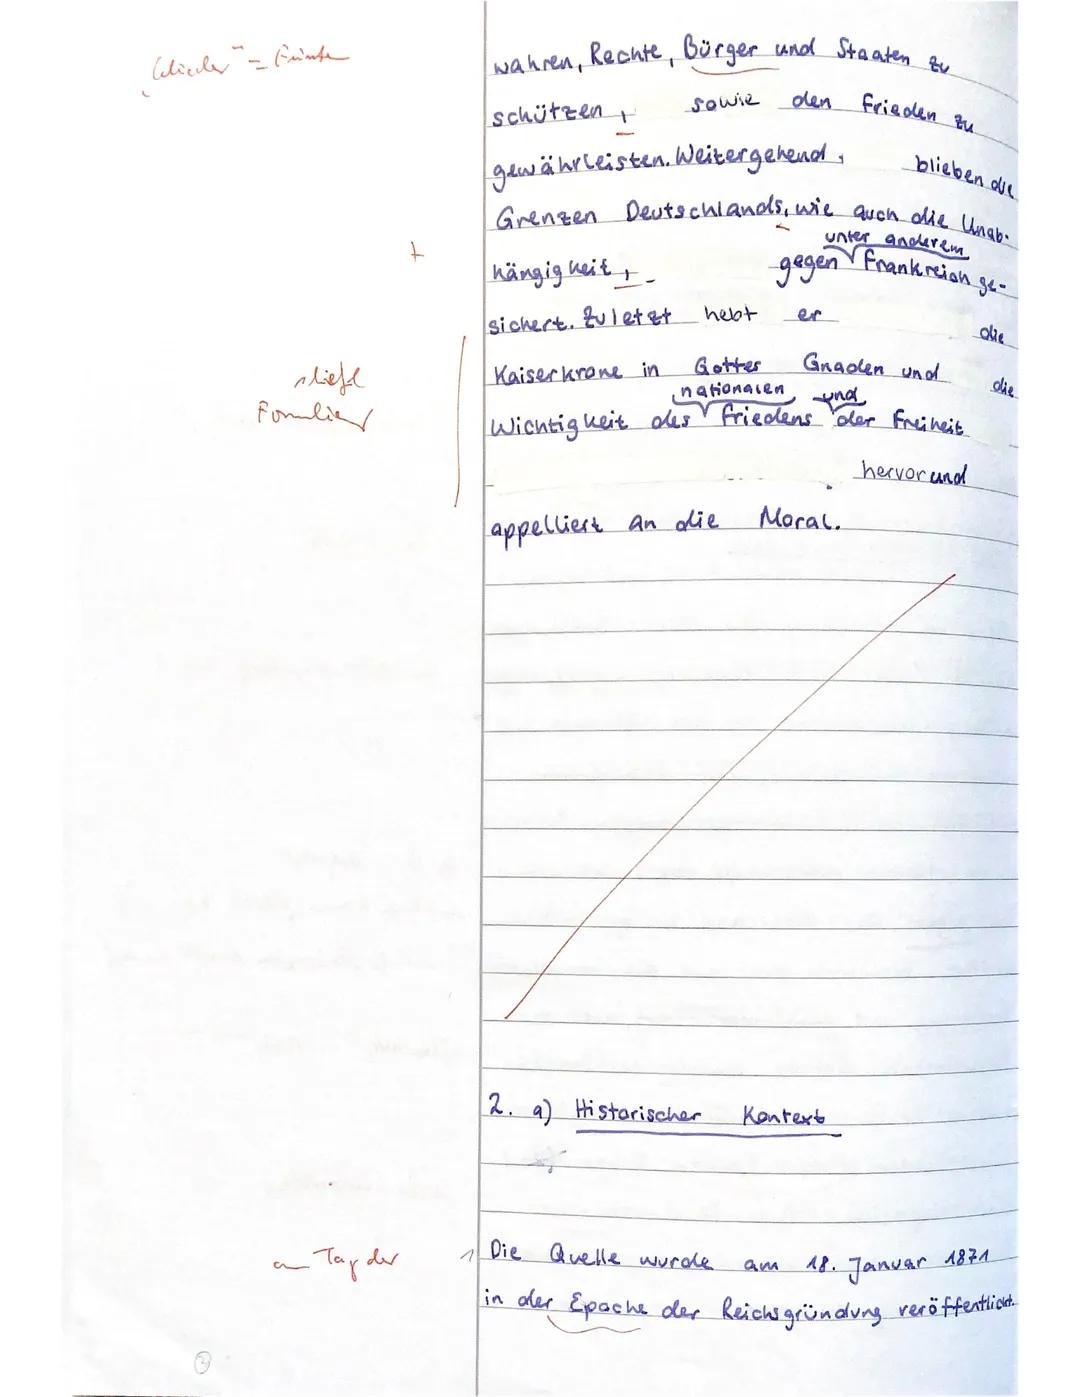 wahren, Rechte, Bürger und Staaten zu
schützen, sowie den Frieden zu
gewährleisten. Weitergehend, blieben die
Grenzen Deutschlands, wie auch die Unab-
unter anderem
+
hängigkeit, gegen Frankreich ge-
sichert. Zuletzt hebt er die
Kaiserkrone in Gottes Gnaden und die
nationalen und
Wichtigkeit des Friedens der Freiheit
hervor und
appelliert an die Moral.
2. a) Historischer Kontext
am Tag der
Die Quelle wurde am 18. Januar 1871
in der Epoche der Reichsgründung veröffentlicht.